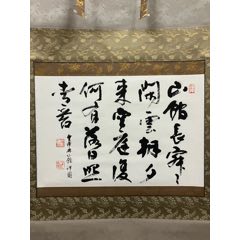 山館長寂々
閑雲朝夕
来空庭復
何有落日照
青苔